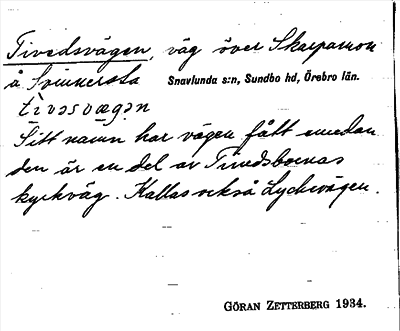 Tivedsvägen, väg över Skarpamon
å Svinnersta Snavlunda s:n, Sundbo hd, Örebro län.
tìvəsvægən
Sitt namn har vägen fått emedan
den är en del av Tivedsboarnas
kyrkväg. Kallas också Lyckevägen.
GÖRAN ZETTERBERG 1934.